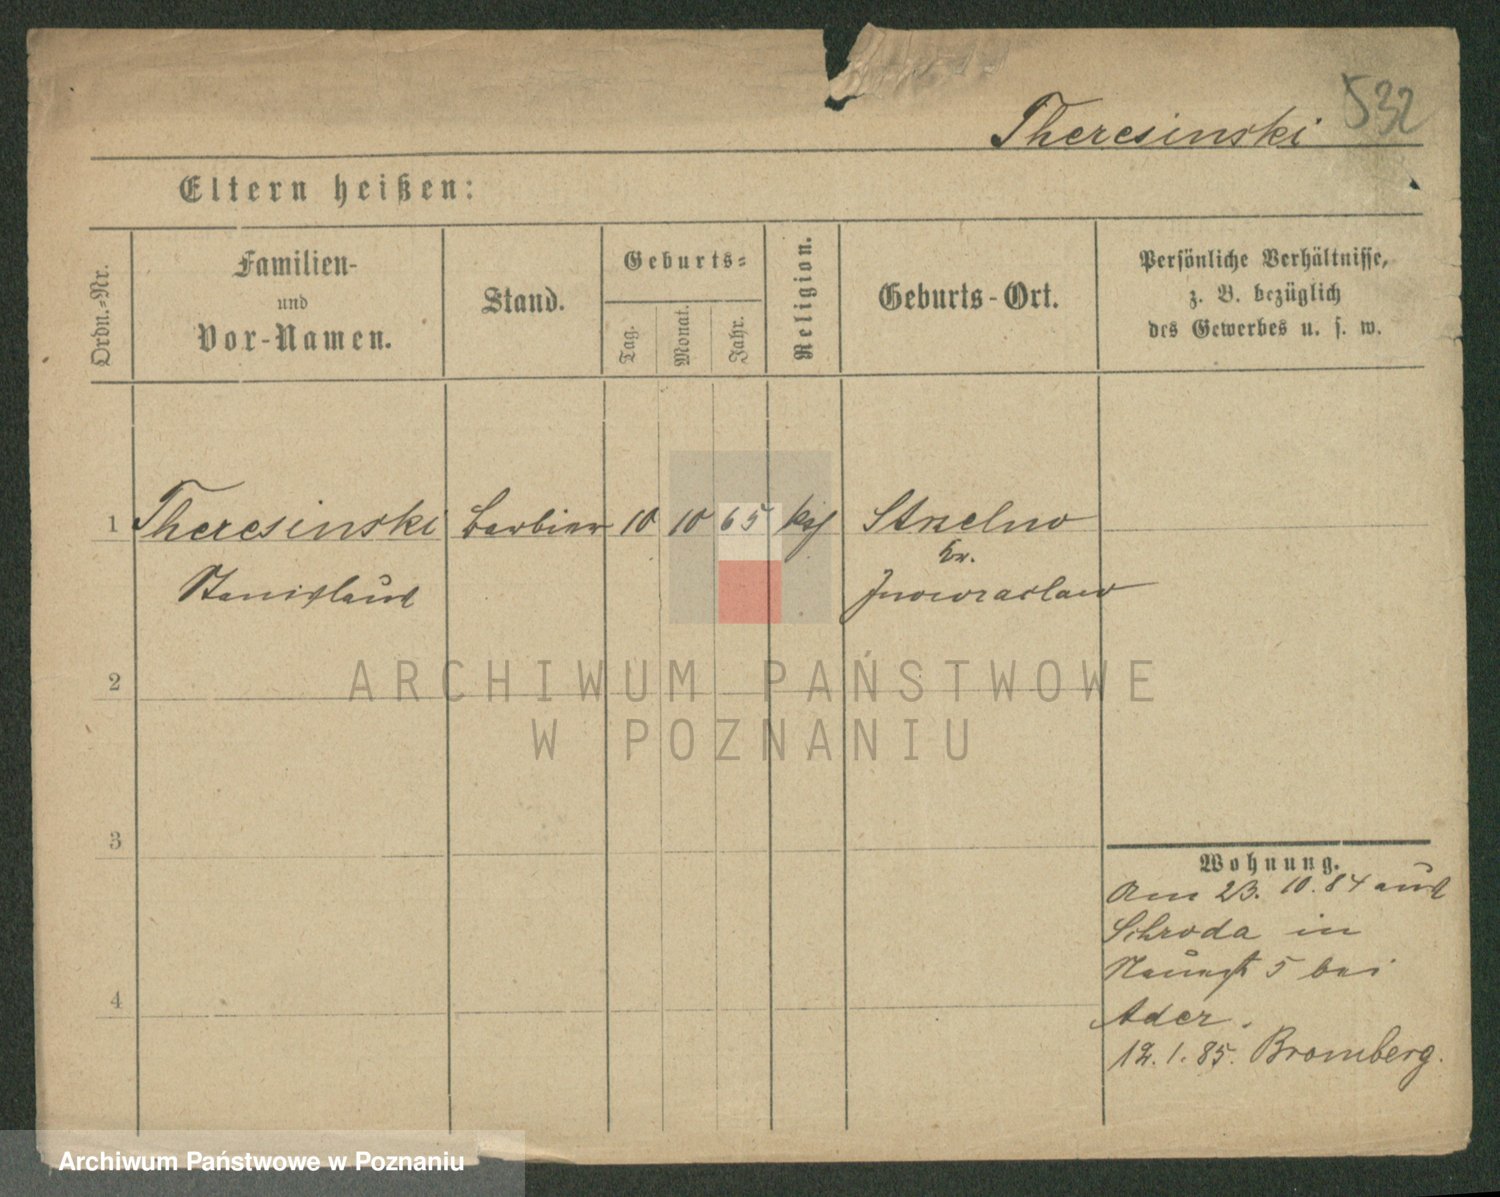 532
Theresinski
Eltern heißen:
Ordn.-Nr.
Familien-
und
Vor-Namen.
Stand.
Geburts-
Tag.
Monat.
Jahr.
Religion.
Geburts-Ort.
Persönliche Verhältnisse,
z. B. bezüglich
des Gewerbes u. s. w.
1 Theresinski Barbier 10 10 65 kth Strelno
Kr.
Stanislaus Inowraclaw
2
3
4
Wohnung.
Am 23. 10. 84 aus
Schroda in
5 bei
Ader.
12. 1. 85. Bromberg.
ARCHIWUM PAŃSTWOWE
W POZNANIU
Archiwum Państwowe w Poznaniu